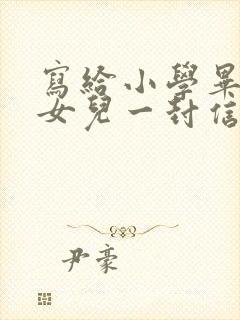 寫給小學畢
女兒一封信
尹豪